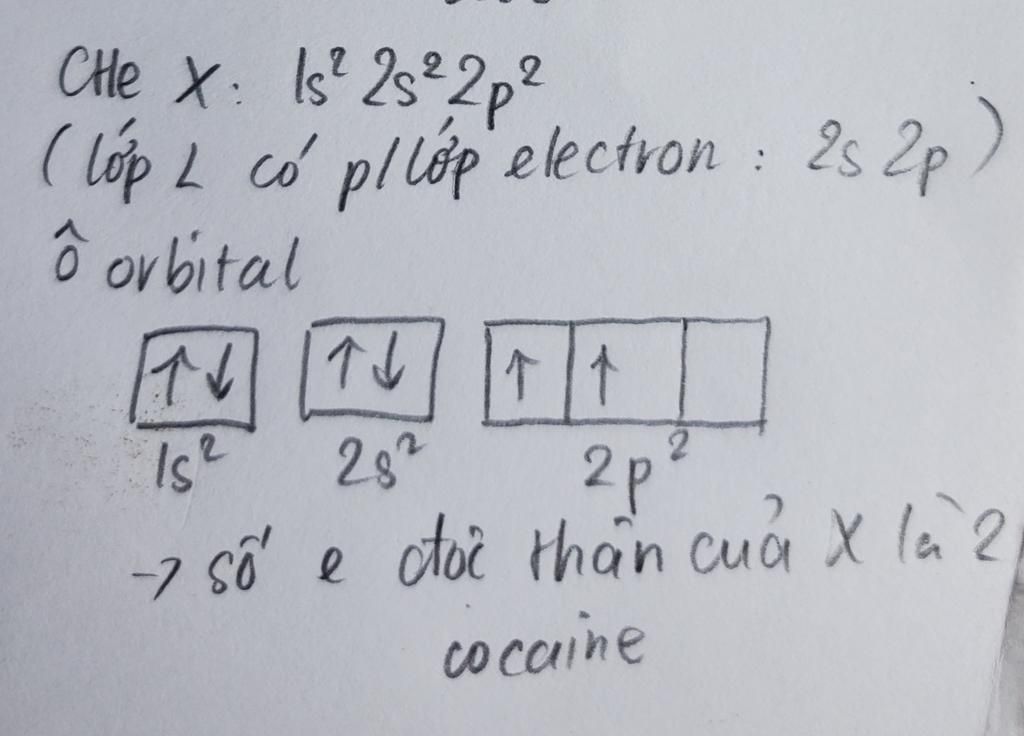 CHe X: 1s² 2s² 2p²
(lớp L có p/lớp electron: 2s 2p)
ô orbital
↑↓ ↑↓ ↑ ↑
1s² 2s² 2p²
→ số e độc thân của X là 2
cocaine